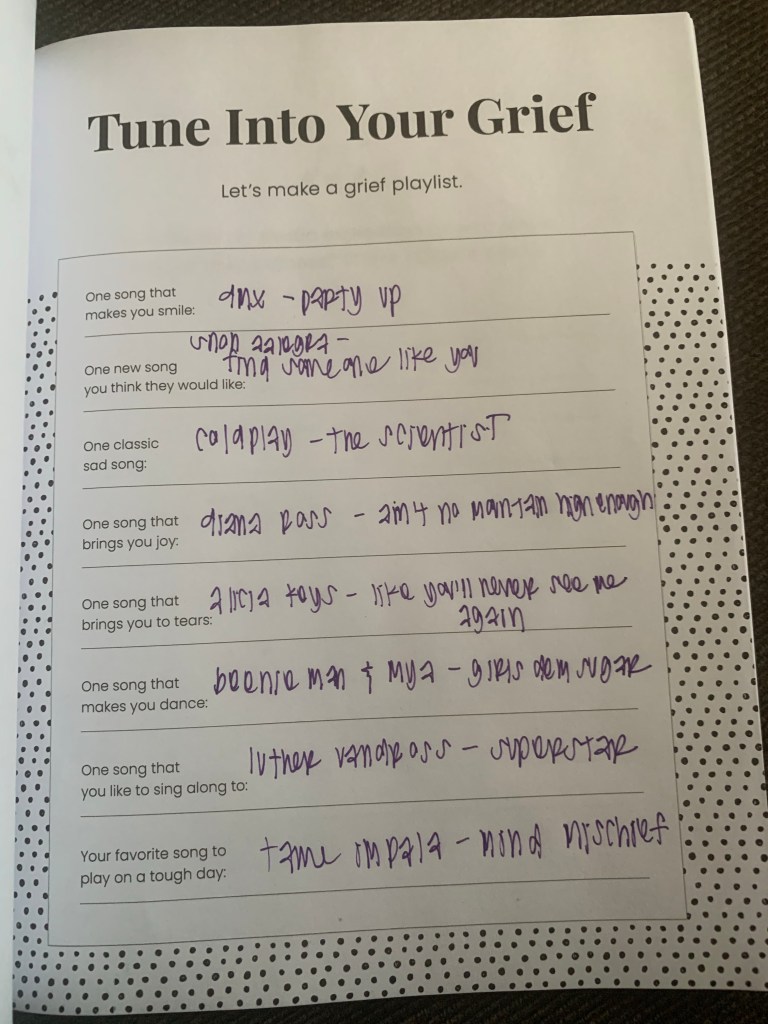 Tune Into Your Grief
Let's make a grief playlist.
One song that
makes you smile:
dmx - party up
snoh aalegra -
find someone like you
One new song
you think they would like:
coldplay - the scientist
One classic
sad song:
diana ross - ain't no mountain high enough
One song that
brings you joy:
alicia keys - like you'll never see me
again
One song that
brings you to tears:
beenie man & mya - girls dem sugar
One song that
makes you dance:
luther vandross - superstar
One song that
you like to sing along to:
tame impala - mind mischief
Your favorite song to
play on a tough day: